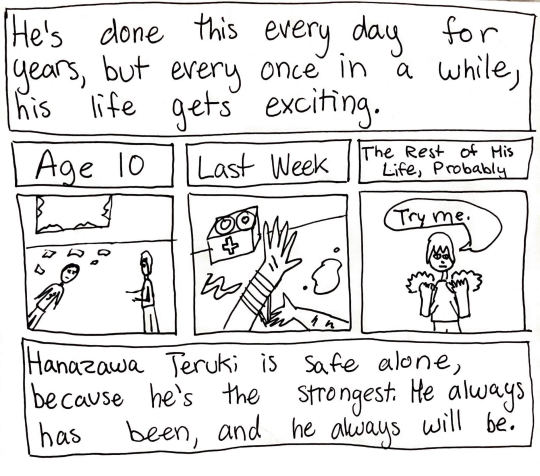 He's done this every day for
years, but every once in a while,
his life gets exciting.
Age 10
Last Week
The Rest of His
Life, Probably
Try me.
Hanazawa Teruki is safe alone,
because he's the strongest. He always
has been, and he always will be.